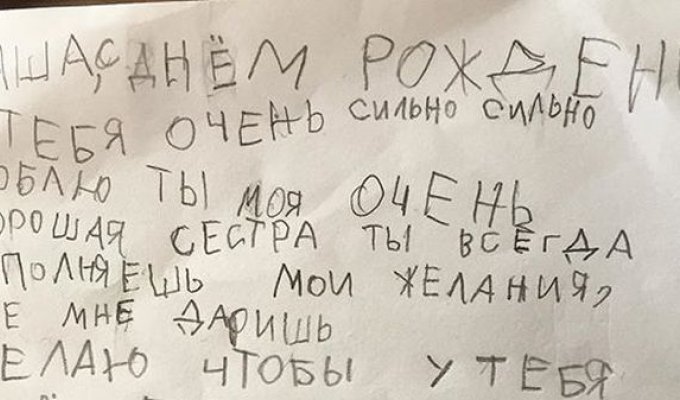 ША, С ДНЁМ РОЖДЕН
ТЕБЯ ОЧЕНЬ СИЛЬНО СИЛЬНО
ОБЛЮ ТЫ МОЯ ОЧЕНЬ
ОРОШАЯ СЕСТРА ТЫ ВСЕГДА
ПОЛНЯЕШЬ МОИ ЖЕЛАНИЯ,
Е МНЕ ДАРИШЬ
ЕЛАЮ ЧТОБЫ У ТЕБЯ